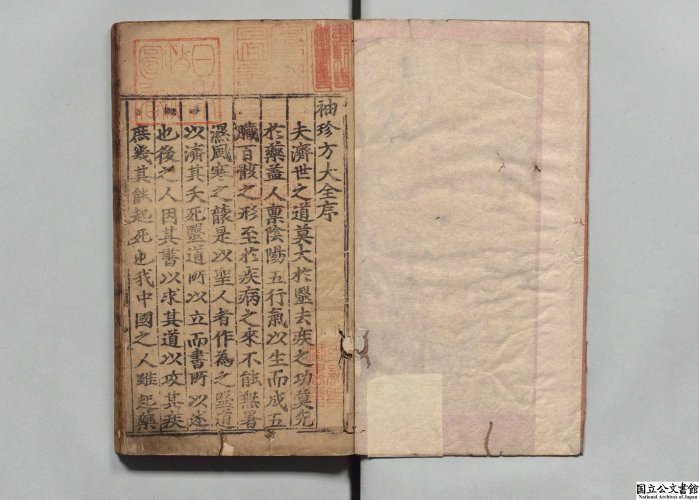 袖珍方大全序
夫濟世之道莫大於醫去疾之功莫先
於藥蓋人稟陰陽五行氣以生而成五
臟百骸之形至於疾病之來不能無暑
濕風寒之是以聖人者作為之醫道
以濟其夭死醫道所以立而書所以述
也後之人因其書以求其道以攻其疾
庶幾其能起死也我中國之人雖起藥
国立公文書館
National Archives of Japan